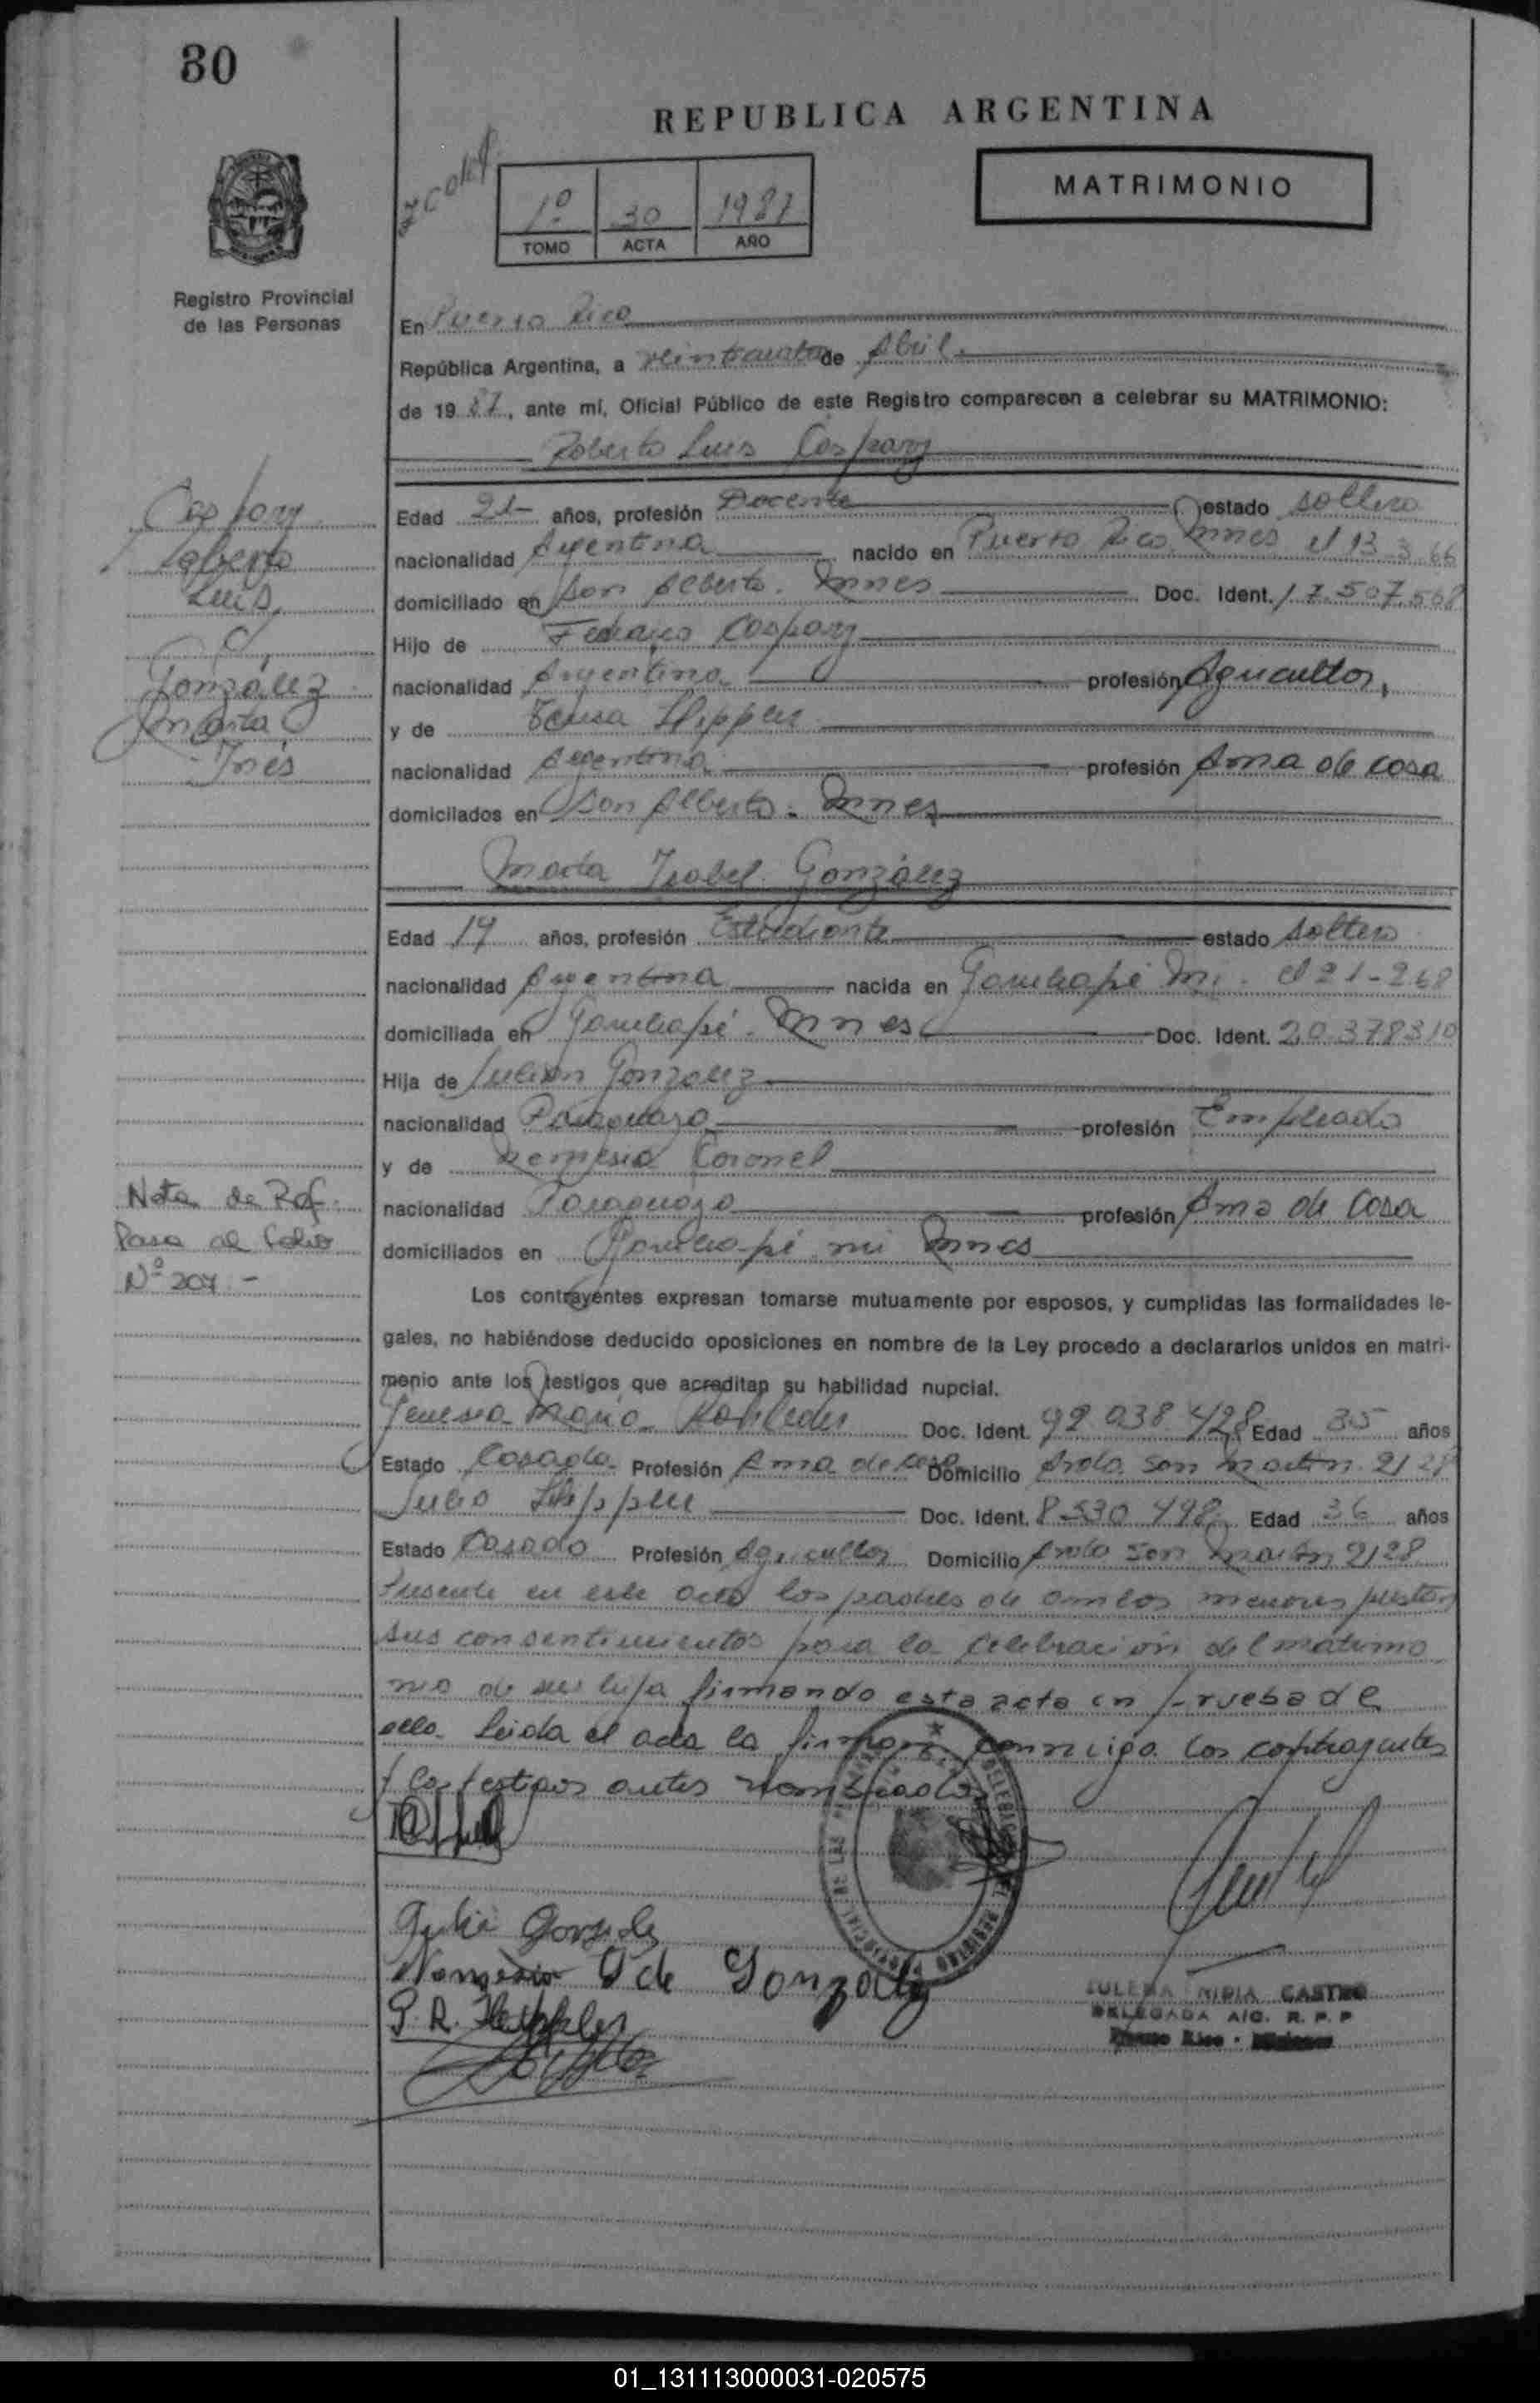 30
REPUBLICA ARGENTINA
MATRIMONIO
1º 30 1987
TOMO ACTA AÑO
Registro Provincial
de las Personas
En Puerto Rico
República Argentina, a de Abril
de 19 87, ante mí, Oficial Público de este Registro comparecen a celebrar su MATRIMONIO:
Roberto Luis Caspary
Caspary
Roberto
Luis
c/
González
Marta
Inés
Edad 21 años, profesión Docente estado soltero
nacionalidad Argentina nacido en Puerto Rico Mnes el 13-3-66
domiciliado en San Alberto. Mnes Doc. Ident. 17.507.568
Hijo de Caspary
nacionalidad Argentina profesión Agricultor,
y de
nacionalidad Argentina profesión Ama de casa
domicilados en San Alberto. Mnes
Marta Isabel González
Edad 19 años, profesión Estudiante estado soltera
nacionalidad Argentina nacida en Garuhapé Mi. el 21-2-68
domiciliada en Garuhapé. Mnes Doc. Ident. 20.378310
Hija de Julian Gonzalez
nacionalidad Paraguaya profesión Empleado
y de Nemesia Coronel
nacionalidad Paraguaya profesión Ama de Casa
domiciliados en Garuhapé mi Mnes
Nota de Ref.
Pasa al Folio
Nº 207.-
Los contrayentes expresan tomarse mutuamente por esposos, y cumplidas las formalidades le-
gales, no habiéndose deducido oposiciones en nombre de la Ley procedo a declararlos unidos en matri-
monio ante los testigos que acreditan su habilidad nupcial.
Maria Doc. Ident. 92.038.428 Edad 35 años
Estado Casada Profesión Ama de casa Domicilio Avda. San Martin 2128
Julio Doc. Ident. 8.530.498 Edad 36 años
Estado Casado Profesión Agricultor Domicilio Avda San Martin 2128
Presente en este acto los padres de ambos menores prestan
sus consentimientos para la celebración del matrimo
nio de su hija firmando esta acta en prueba de
ello. Leida el acta la firman conmigo los contrayentes
y los testigos antes nombrados
Gonzalez
de Gonzalez
NIDIA CASTRO
DELEGADA A/C. R. P. P
Puerto Rico - Misiones
01_131113000031-020575